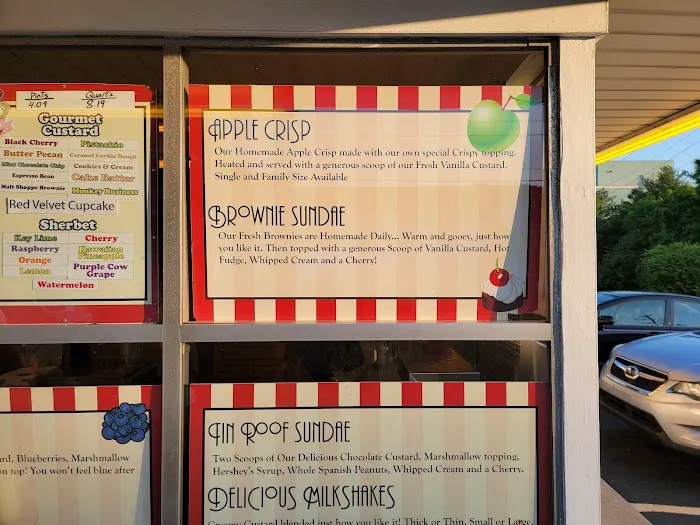 Pints Quarts
4.09 8.19
Gourmet
Custard
Black Cherry Pistachio
Butter Pecan Caramel Cookie Dough
Mint Chocolate Chip Cookies & Cream
Espresso Bean Cake Batter
Malt Shoppe Brownie Monkey Business
Red Velvet Cupcake
Sherbet
Key Lime Cherry
Raspberry Hawaiian Pineapple
Orange
Lemon Purple Cow Grape
Watermelon
APPLE CRISP
Our Homemade Apple Crisp made with our own special Crispy topping.
Heated and served with a generous scoop of our Fresh Vanilla Custard.
Single and Family Size Available
BROWNIE SUNDAE
Our Fresh Brownies are Homemade Daily... Warm and gooey, just how
you like it. Then topped with a generous Scoop of Vanilla Custard, Hot
Fudge, Whipped Cream and a Cherry!
rd, Blueberries, Marshmallow
on top! You won't feel blue after
TIN ROOF SUNDAE
Two Scoops of Our Delicious Chocolate Custard, Marshmallow topping,
Hershey's Syrup, Whole Spanish Peanuts, Whipped Cream and a Cherry.
DELICIOUS MILKSHAKES
Creamy Custard blended just how you like it! Thick or Thin, Small or Large,